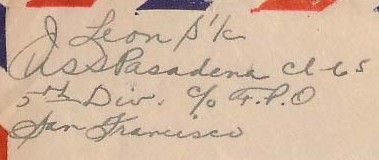 J Leon S1/c
USS Pasadena Cl-65
5th Div. c/o F.P.O
San Francisco